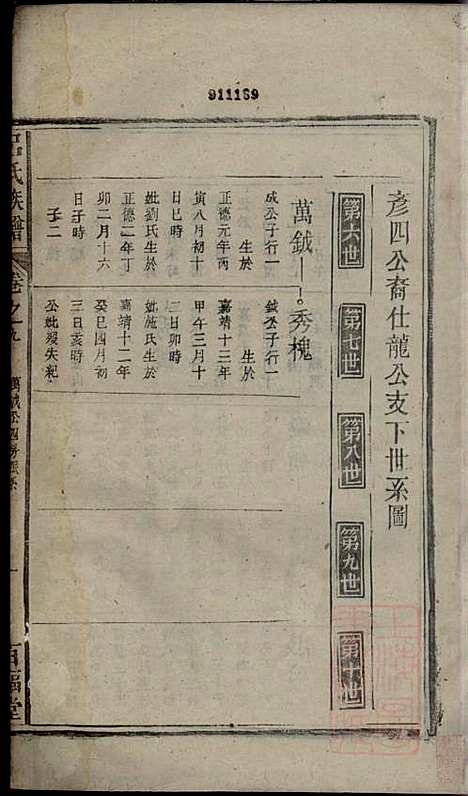 911189
彥四公裔仕龍公支下世系圖
第六世
第七世
第八世
第九世
第十世
萬鉞
秀槐
成公子行一
生於
正德元年丙
寅八月初十
日巳時
妣劉氏生於
正德二年丁
卯二月十六
日子時
子二
鉞公子行一
生於
嘉靖十三年
甲午三月十
二日卯時
妣施氏生於
嘉靖十二年
癸巳四月初
三日亥時
公妣歿失紀
呂氏族譜
卷之九
萬鉞公四房世系
一
百福堂